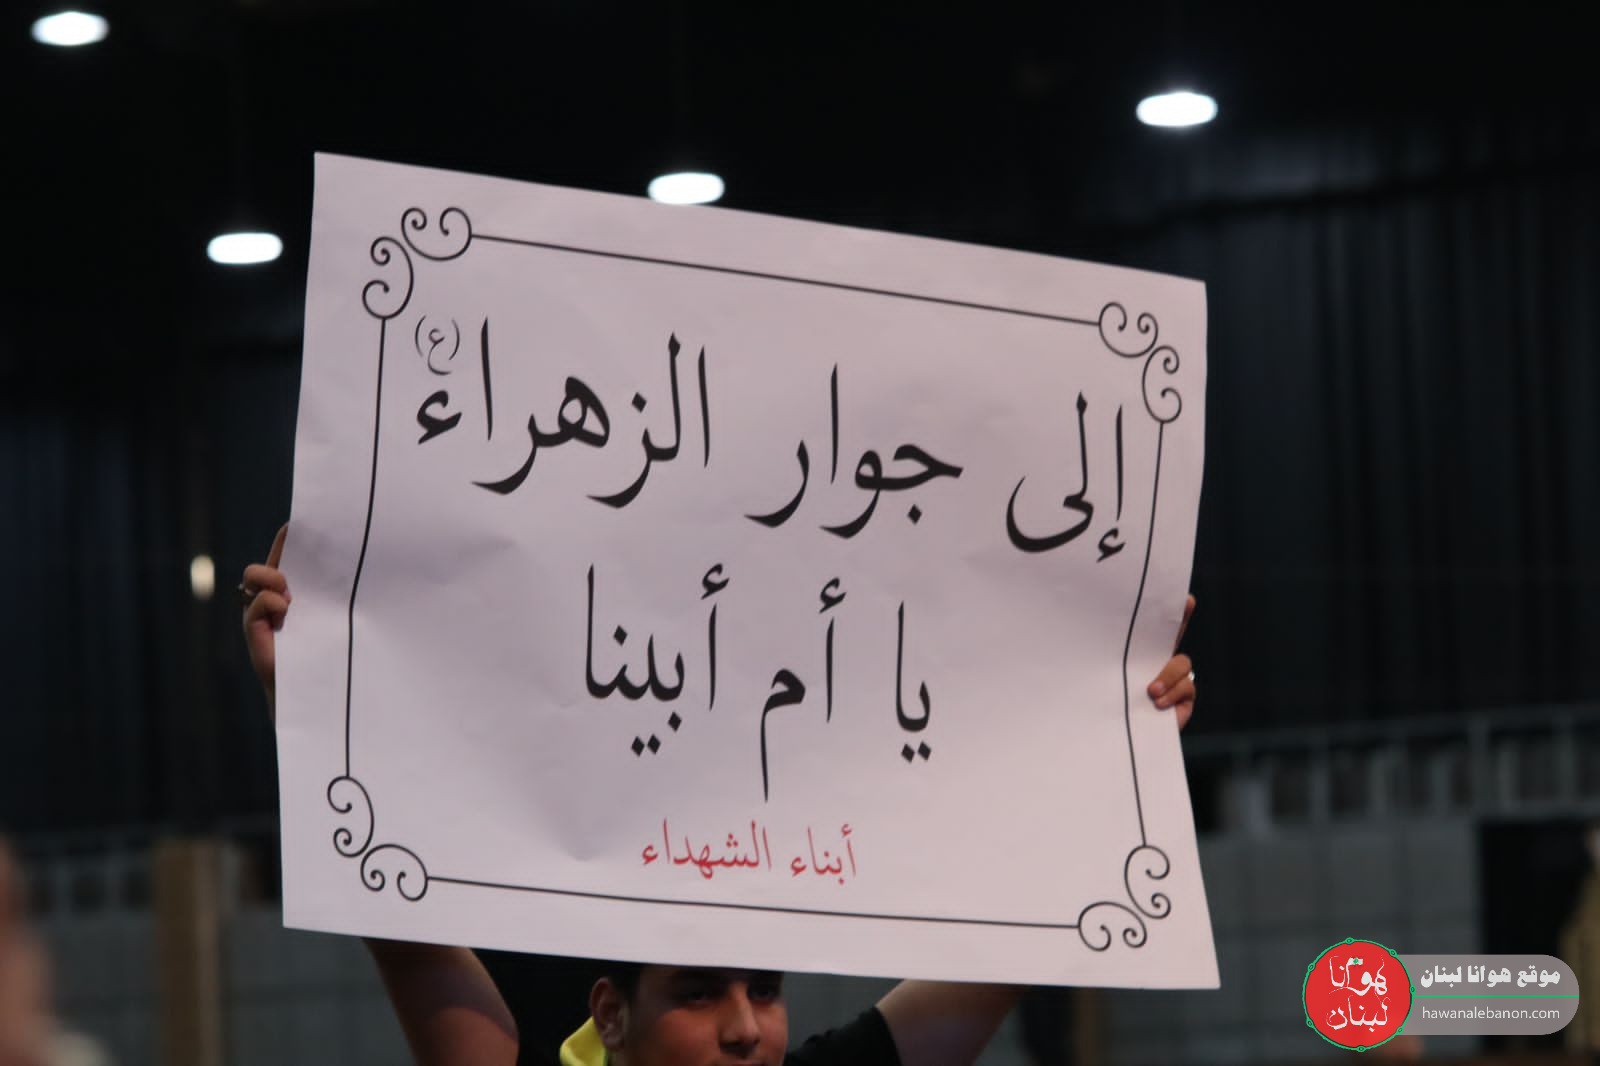 إلى جوار الزهراء (ع)
يا أم أبينا
أبناء الشهداء
هوانا
لبنان
موقع هوانا لبنان
hawanalebanon.com